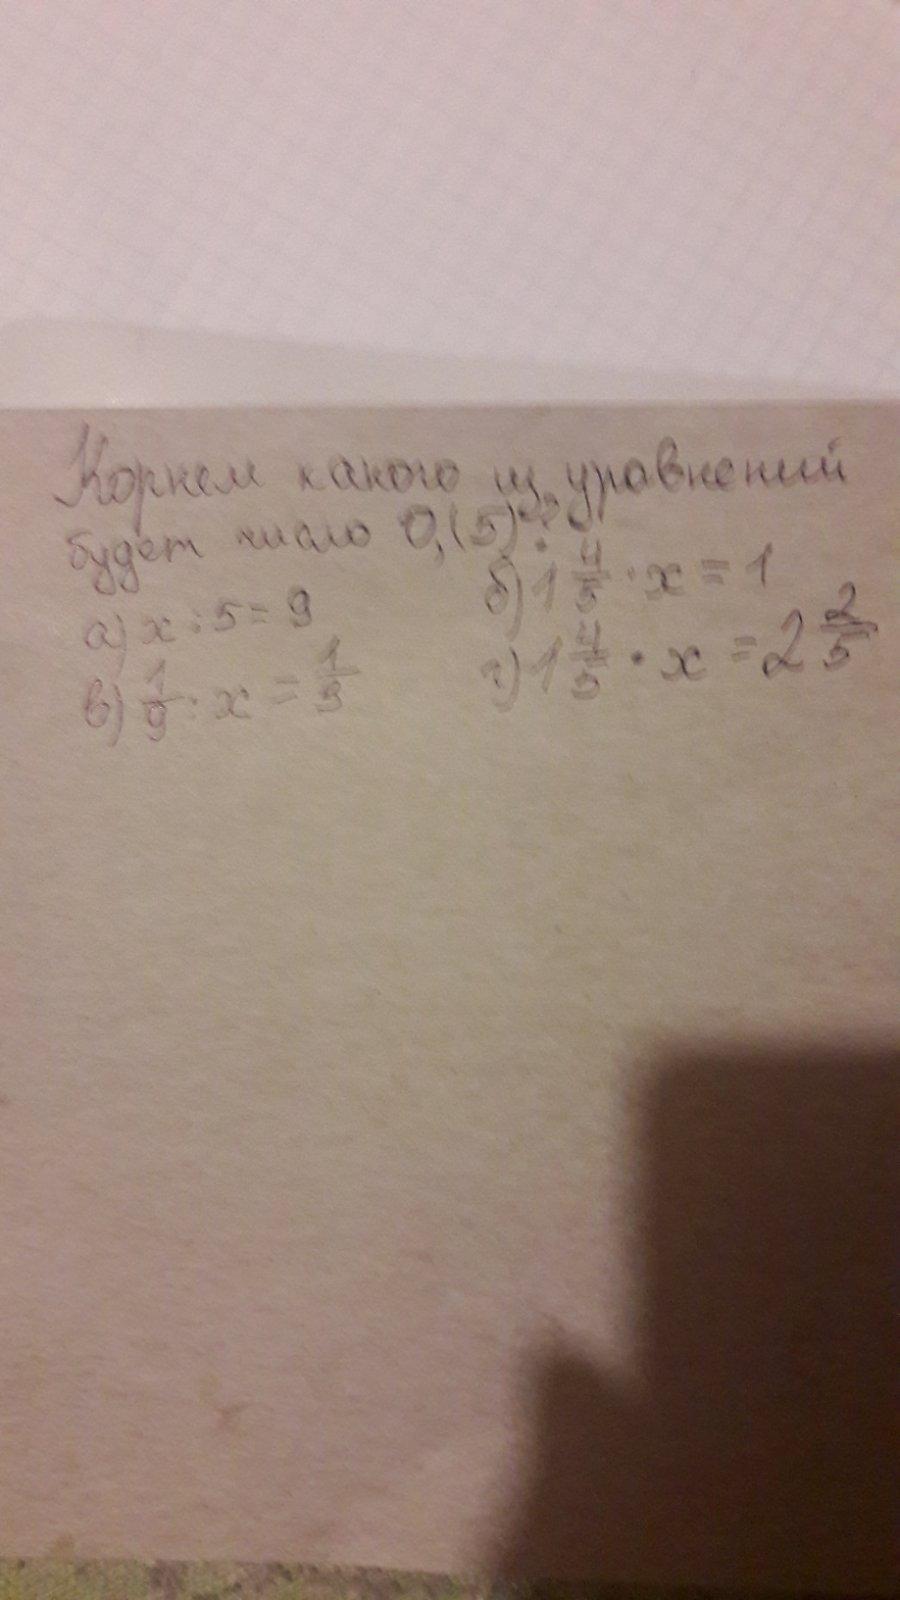 Корнем какого из уравнений
будет число 0,(5)?
а) x : 5 = 9
б) 1 4/5 · x = 1
в) 1/9 : x = 1/3
г) 1 4/5 · x = 2 2/5